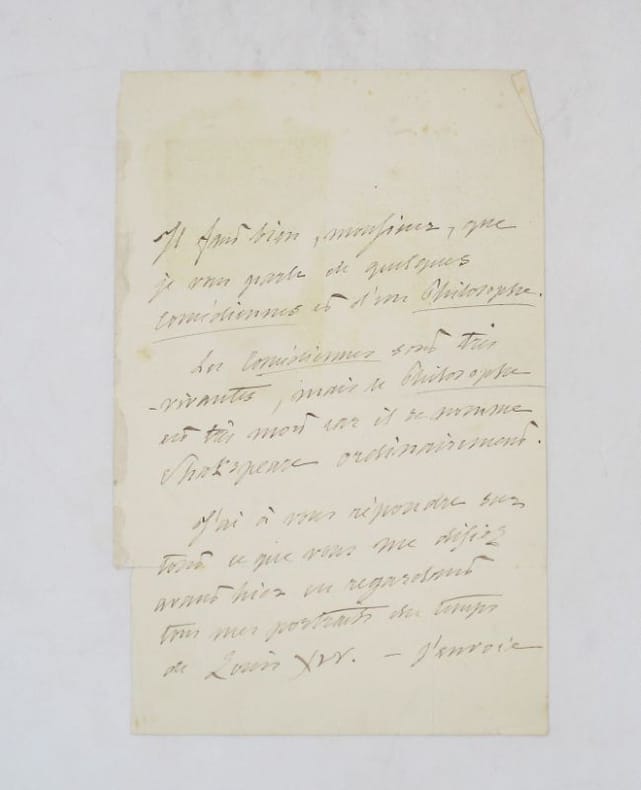 Il faut bien, monsieur, que
je vous parle de quelques
Comédiennes et d'un Philosophe.
Les Comédiennes sont très
vivantes, mais le Philosophe
est très mort car il se nomme
Shakspeare ordinairement.
J'ai à vous répondre sur
tout ce que vous me disiez
avant hier en regardant
tous mes portraits du temps
de Louis XIV. - J'envoie